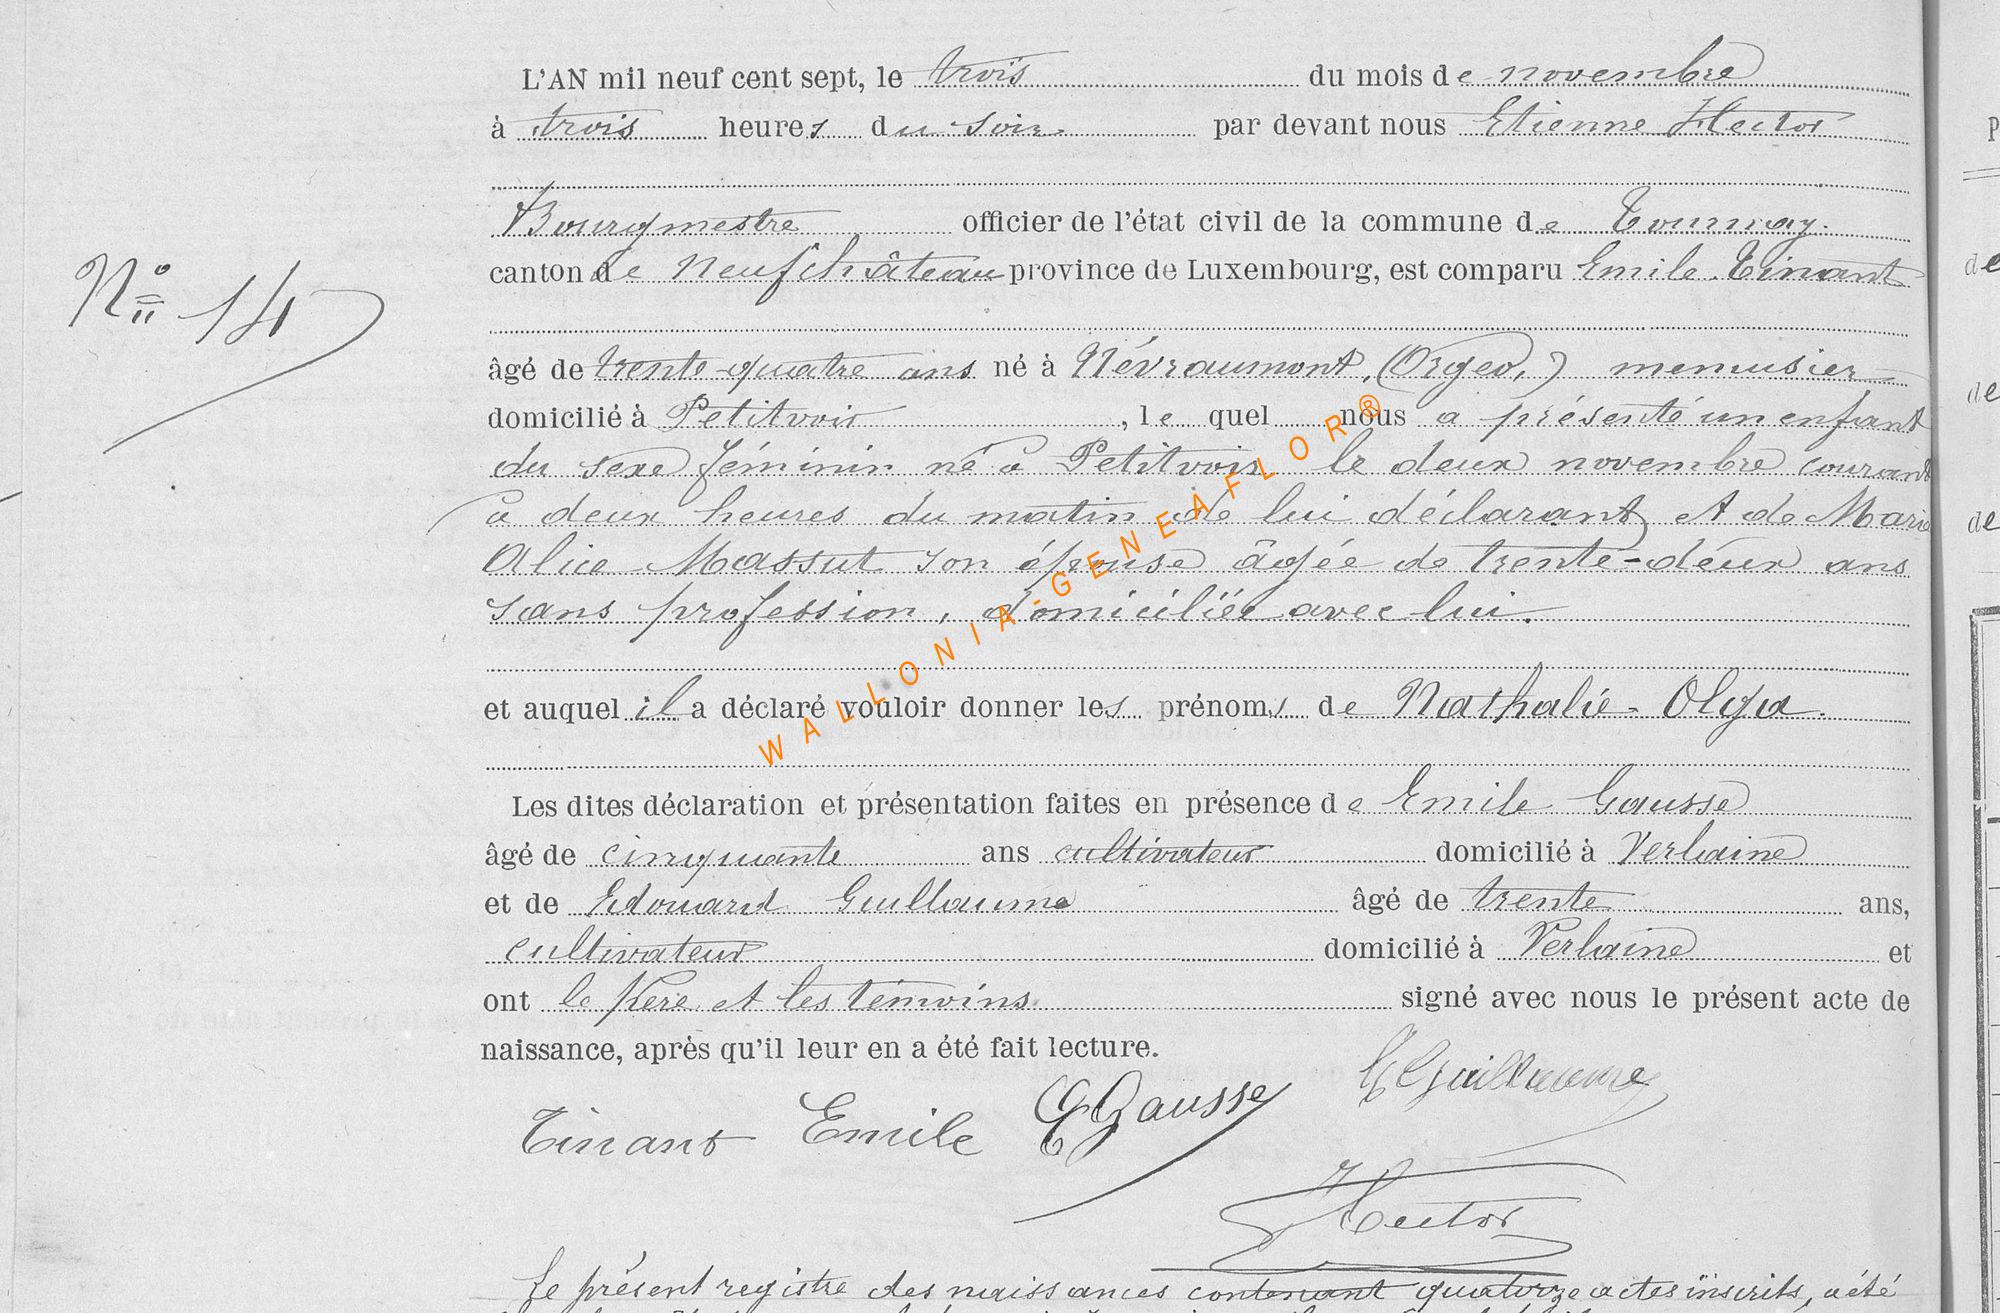 L'AN mil neuf cent sept, le trois du mois de novembre
à trois heures du soir par devant nous Etienne Hector
Bourgmestre officier de l'état civil de la commune de Tournay.
N° 14
canton de Neufchâteau province de Luxembourg, est comparu Emile Tinant
âgé de trente-quatre ans né à Névraumont, (Orgeo,) menuisier
domicilié à Petitvoir, le quel nous a présenté un enfant
du sexe féminin né à Petitvoir le deux novembre courant
à deux heures du matin de lui déclarant et de Marie
Alice Massut son épouse âgée de trente-deux ans
sans profession, domiciliée avec lui.
et auquel il a déclaré vouloir donner les prénoms de Nathalie-Olga.
WALLONIA-GENEAFLOR®
Les dites déclaration et présentation faites en présence de Emile Gausse
âgé de cinquante ans cultivateur domicilié à Verlaine
et de Edouard Guillaume âgé de trente ans,
cultivateur domicilié à Verlaine et
ont le Père et les témoins signé avec nous le présent acte de
naissance, après qu'il leur en a été fait lecture.
Tinant Emile E Gausse E Guillaume
Hector
Le présent registre des naissances contenant quatorze actes inscrits, a été
P
de
de
de